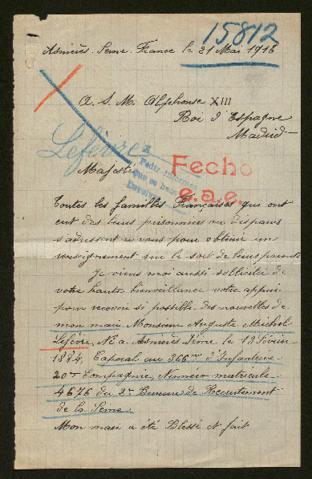 15812
Asnières. Seine. France le 21 Mai 1916
A. S. M. Alphonse XIII
Roi d'Espagne
Madrid
Lefèvre
Fecho
e.a.e.
Majesté
Toutes les familles Françaises qui ont
eut des leurs prisonniers ou disparus
s'adressent à vous pour obtenir un
renseignement sur le sort de leurs parents
Je viens moi aussi solliciter de
votre haute bienveillance votre appui
pour recevoir si possible des nouvelles de
mon mari Monsieur Auguste Michel
Lefèvre, Né à Asnières Seine le 13 Février
1874, Caporal au 366me d'Infanterie
20me Compagnie, Numéro matricule
4676 du 2e Bureau de Recrutement
de la Seine.
Mon mari a été Blessé et fait